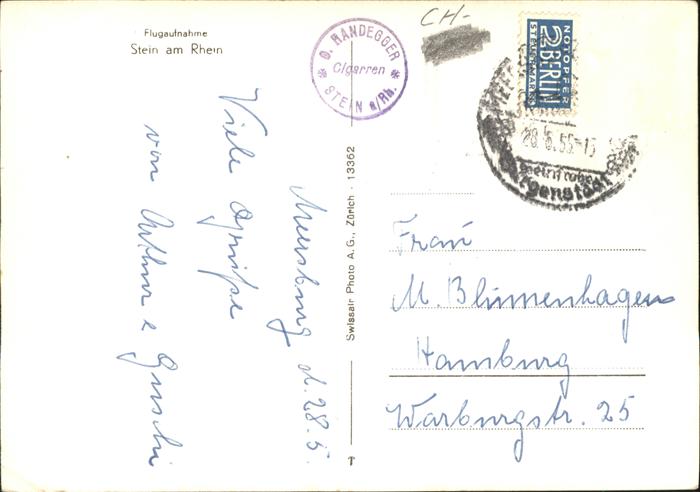 Flugaufnahme
Stein am Rhein
O. RANDEGGER
Cigarren
STEIN a/Rh.
CH-
NOTOPFER
2 BERLIN
STEUERMARKE
28.5.55-15
Meersburg d. 28.5.
Viele Grüße
von Arthur e Guschi
Swissair Photo A.G., Zürich - 13362
Frau
M. Blumenhagen
Hamburg
Warburgstr. 25